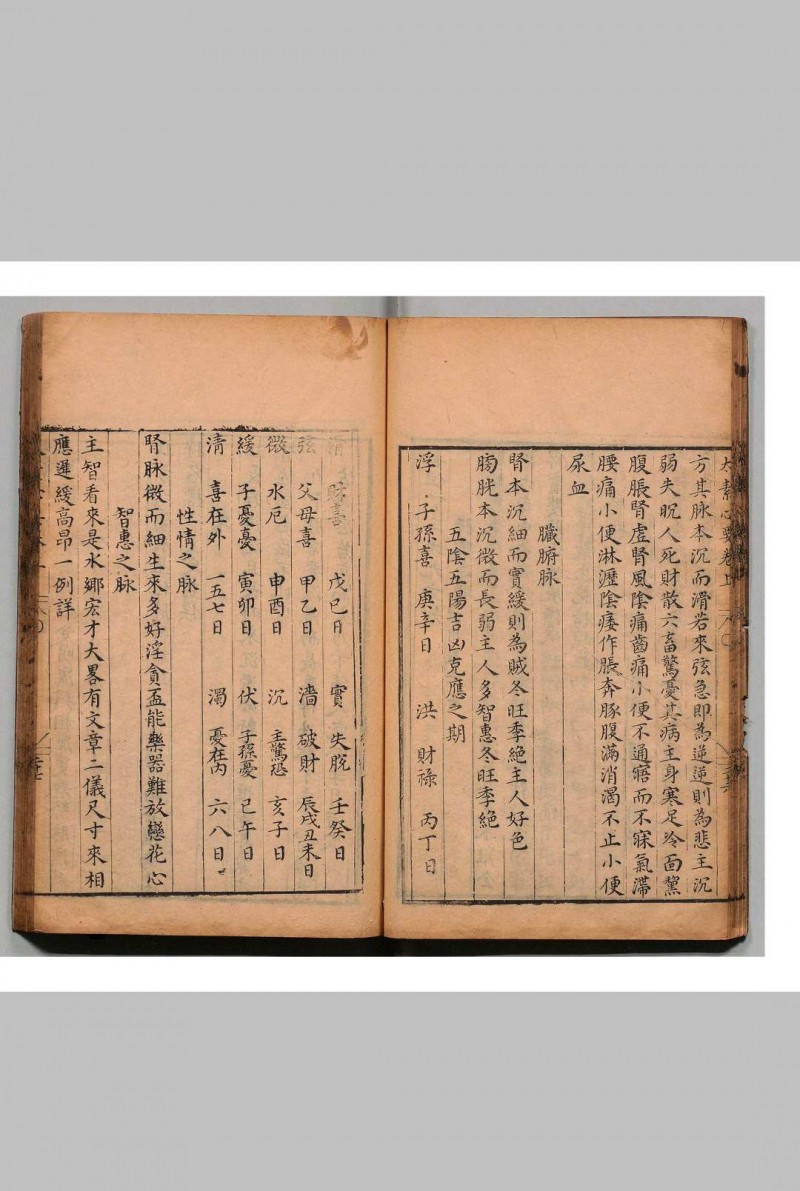 太素心要卷上
方其脉本沉而滑若来弦急即為逆逆則為悲主沉
弱失脫人死財散六畜驚憂其病主身寒足冷面黧
腹脹腎虛腎風陰痛齒痛小便不通寤而不寐氣滯
腰痛小便淋瀝陰痿作脹奔豚腹滿消渴不止小便
尿血
臟腑脉
腎本沉細而實緩則為賊冬旺季絶主人好色
膀胱本沉微而長弱主人多智惠冬旺季絶
五陰五陽吉凶克應之期
浮 子孫喜 庚辛日 洪 財禄 丙丁日
滑 財喜 戊巳日 實 失脫 壬癸日
弦 父母喜 甲乙日 濇 破財 辰戌丑未日
微 水厄 申酉日 沉 主驚恐 亥子日
緩 子憂憂 寅卯日 伏 子孫憂 巳午日
清 喜在外 一五七日 濁 憂在内 六八日
性情之脉
腎脉微而細生來多好淫貪盃能樂器難放戀花心
智惠之脉
主智看來是水鄉宏才大畧有文章二儀尺寸來相
應遲緩高昂一例詳